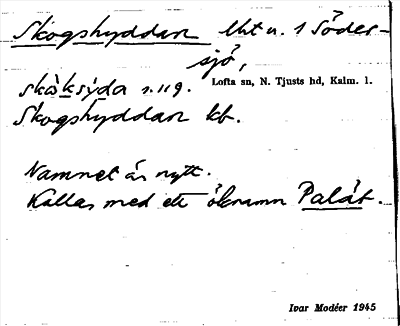 Skogshyddan lht u. 1 Söder-
sjö,
skåksýda s. 119. Lofta sn, N. Tjusts hd, Kalm. l.
Skogshyddan kb.
Namnet är nytt.
Kallas med ett öknamn Palát.
Ivar Modéer 1945